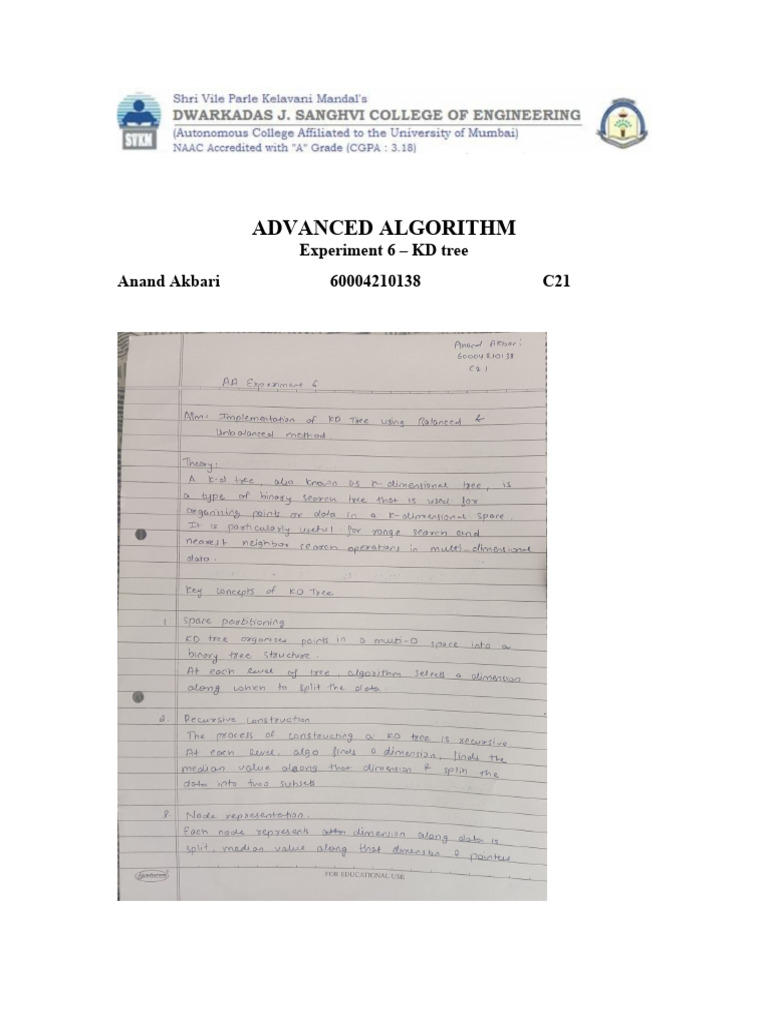 Shri Vile Parle Kelavani Mandal's
DWARKADAS J. SANGHVI COLLEGE OF ENGINEERING
(Autonomous College Affiliated to the University of Mumbai)
NAAC Accredited with "A" Grade (CGPA : 3.18)
SVKM
ADVANCED ALGORITHM
Experiment 6 – KD tree
Anand Akbari 60004210138 C21
Anand Akbari
60004210138
C21
AA Experiment 6
Aim: Implementation of KD Tree using Balanced &
Unbalanced method.
Theory:
A k-d tree, also known as k-dimensional tree, is
a type of binary search tree that is used for
organizing points or data in a k-dimensional space.
It is particularly useful for range search and
nearest neighbor search operations in multi-dimensional
data.
Key concepts of KD Tree
1. Space partitioning
KD tree organises points in a multi-D space into a
binary tree structure.
At each level of tree, algorithm selects a dimension
along which to split the data.
2. Recursive construction
The process of constructing a KD tree is recursive
At each level, algo finds a dimension, finds the
median value along that dimension & split the
data into two subsets
3. Node representation.
Each node represents dimension along data is
split, median value along that dimension & pointer
Sundaram
FOR EDUCATIONAL USE